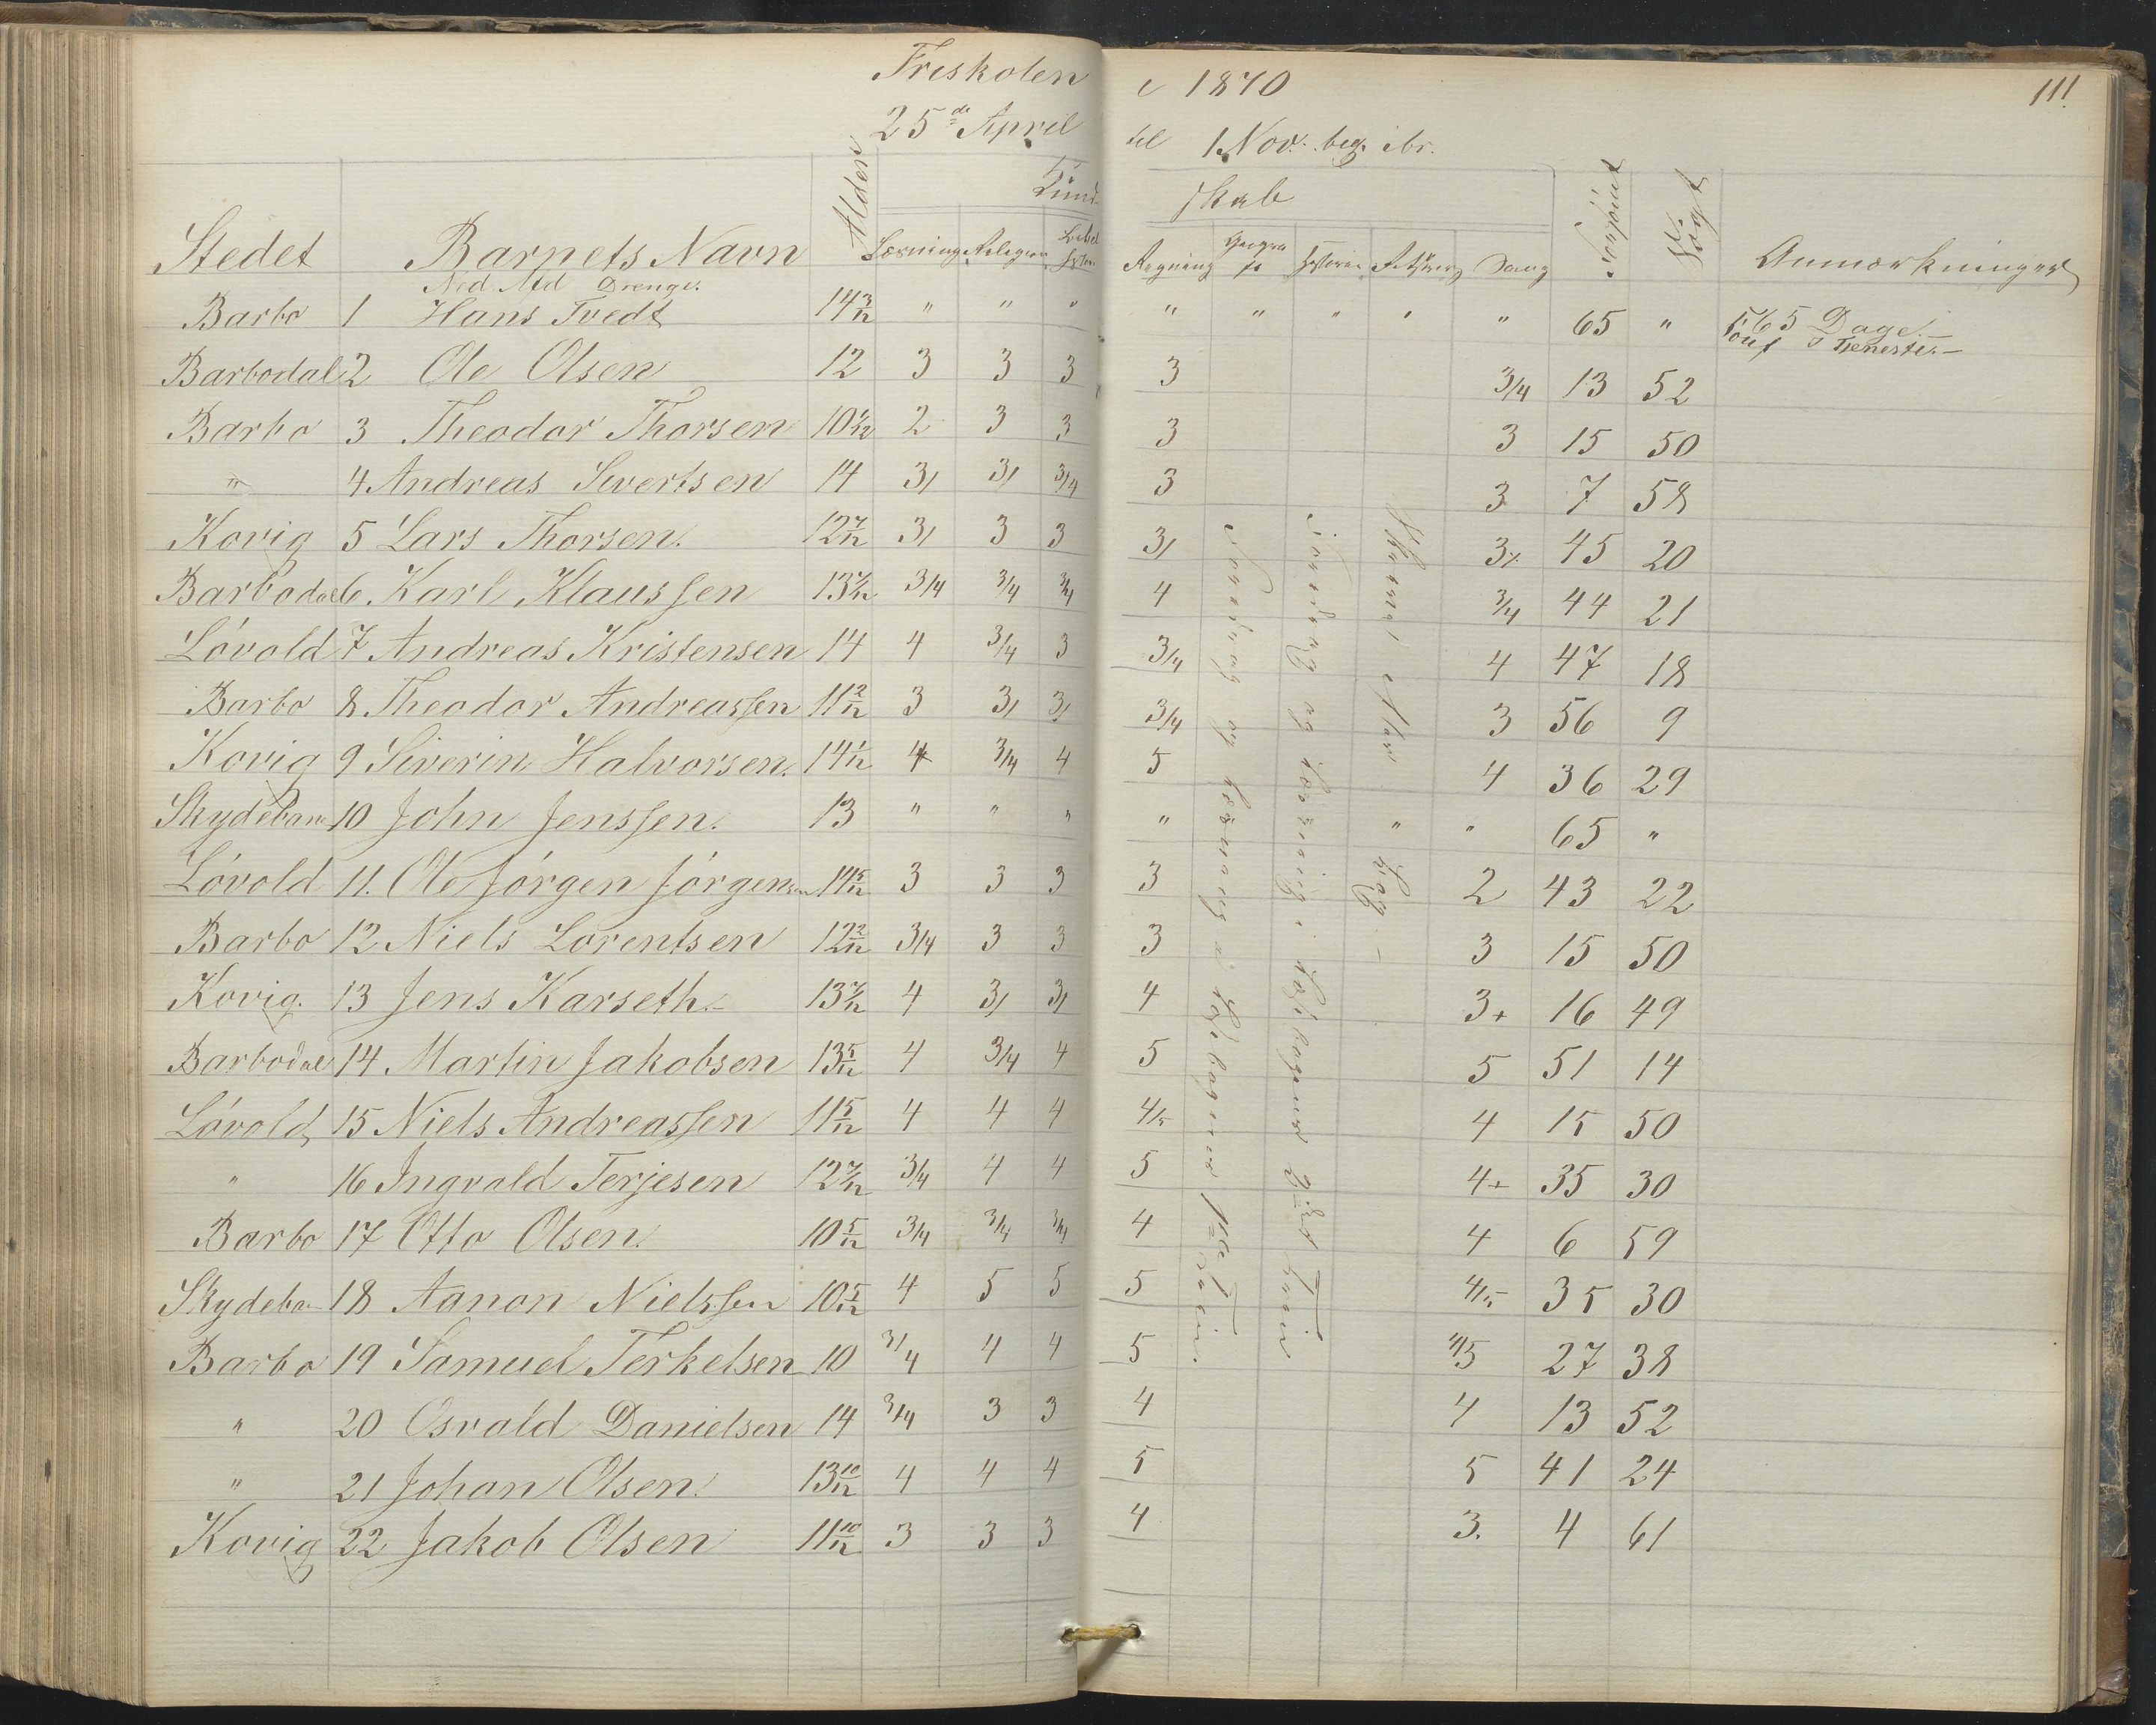 Friskolen i 1870 111
25de April til 1 Nov. beg. ibr.
Kundskab
Stedet Barnets Navn Alder Læsning Religion Bibel Regning Geogra Historie Sang Forsømt Søgt Anmærkninger
Ned. Afd Drenge.
Barbo 1 Hans Tvedt 14 3/12 " " " " " " " " 65 " 65 Dage.
Tjeneste.
Barbodal 2 Ole Olsen 12 3 3 3 3 3/4 13 52
Barbo 3 Theodor Thorsen 10 1/12 2 3 3 3 3 15 50
" 4 Andreas Sivertsen 14 3/ 3/ 3/4 3 3 7 58
Kovig 5 Lars Thorsen. 12 7/12 3/ 3 3 3/ 3 45 20
Barbodal 6 Karl Klaussen 13 3/4 3/4 3/4 4 3/4 44 21
Lóvold 7 Andreas Kristensen 14 4 3/4 3 3/4 4 47 18
Barbo 8 Theodor Andreassen 11 2/12 3 3/ 3/ 3/4 3 56 9
Kovig 9 Siverin Halvorsen. 14 1/12 4 3/4 4 5 4 36 29
Skydeban 10 John Jenssen. 13 " " " " " " 65 "
Lóvold 11. Ole Jórgen Jórgensen 14 5/12 3 3 3 3 2 43 22
Barbo 12 Niels Lorentsen 12 2/12 3/4 3 3 3 3 15 50
Kovig. 13 Jens Karseth. 13 7/12 4 3/ 3/ 4 3+ 16 49
Barbodal 14 Martin Jakobsen 13 5/12 4 3/4 4 5 5 51 14
Lóvold 15 Niels Andreassen 11 5/12 4 4 4 4/5 4 15 50
" 16 Ingvald Terjesen 12 7/12 3/4 4 4 5 4+ 35 30
Barbo 17 Otto Olsen. 10 5/12 3/4 3/4 3/4 4 4 6 59
Skydeba 18 Aanon Nielssen 10 5/12 4 5 5 5 4/5 35 30
Barbo 19 Samuel Terkelsen 10 3/4 4 4 5 4/5 27 38
" 20 Osvald Danielsen 14 3/4 3 3 4 4 13 52
" 21 Johan Olsen. 13 10/12 4 4 4 5 5 41 24
Kovig 22 Jakob Olsen 11 10/12 3 3 3 4 3. 4 61
og Læsning i Læsebogens
og Læsning i Læsebogens